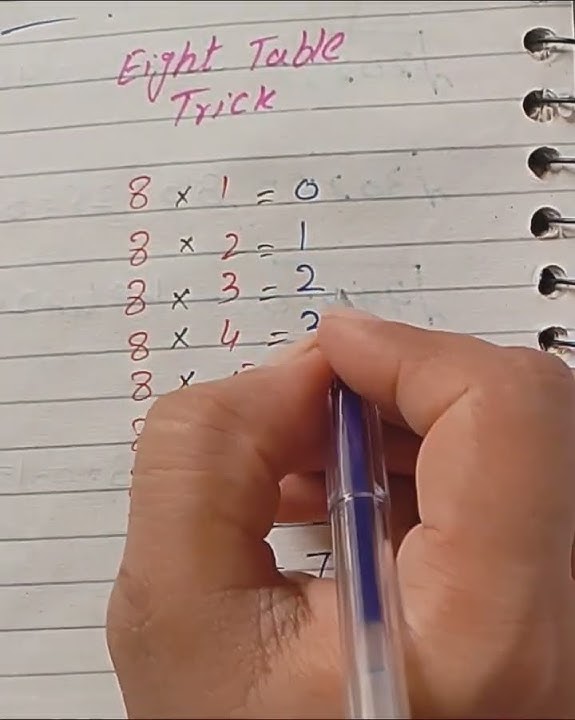 Eight Table
Trick
8 × 1 = 0
8 × 2 = 1
8 × 3 = 2
8 × 4 = 3
8 ×
8
7